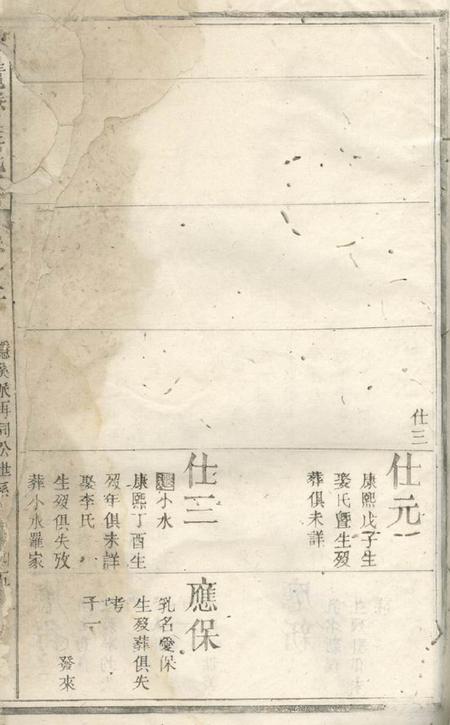 仕三
仕元
康熙戊子生
娶氏暨生歿
葬俱未詳
仕三
小水
康熙丁酉生
歿年俱未詳
娶李氏
生歿俱失攷
葬小水羅家
應保
乳名愛保
生歿葬俱失
考
子一
發來
派再祠公世系